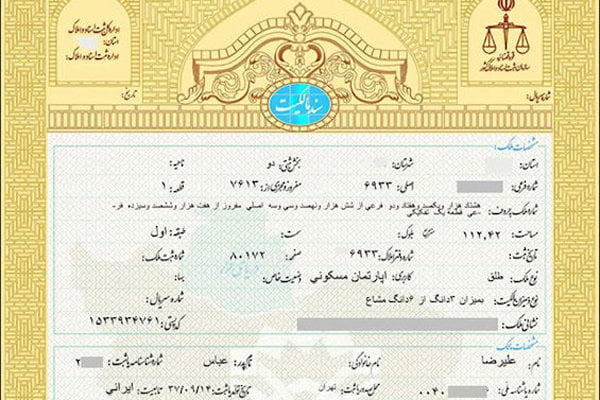 قوه قضائیه
سازمان ثبت اسناد و املاک کشور
اداره کل ثبت اسناد و املاک:
استان:
اداره ثبت اسناد و املاک:
شماره سریال:
تاریخ:
سند مالکیت
مشخصات ملک:
استان: شهرستان: بخش ثبتی: دو ناحیه:
شماره فرعی: اصلی: ۶۹۳۳ مفروز و مجزی از: ۷۶۱۳ قطعه: ۱
شماره ملک بحروف: هشتاد هزار ویکصد وهفتاد ودو فرعی از شش هزار ونهصد وسی وسه اصلی مفروز از هفت هزار وششصد وسیزده فرـ
ـعی قطعه یک تفکیکی
مساحت: ۱۱۲,۴۲ مترمربع بلوک: سمت: طبقه: اول
تاریخ ثبت: شماره دفتر املاک: ۶۹۳۳ صفحه: ۸۰۱۷۲ شماره ثبت ملک:
نوع ملک: طلق کاربری: اپارتمان مسکونی وضعیت خاص: بها:
نوع و میزان مالکیت: بمیزان ۳دانگ از ۶دانگ مشاع شماره سریال:
نشانی ملک: کدپستی: ۱۵۳۳۹۳۴۷۶۱
مشخصات مالک:
نام: علیرضا نام خانوادگی: نام پدر: عباس شماره شناسنامه یا ثبت: ۲
شماره یا شناسه ملی: ۰۰۴۰ محل صدور یا ثبت: تهران تاریخ تولد یا ثبت: ۳۷/۰۹/۱۴ تابعیت: ایرانی